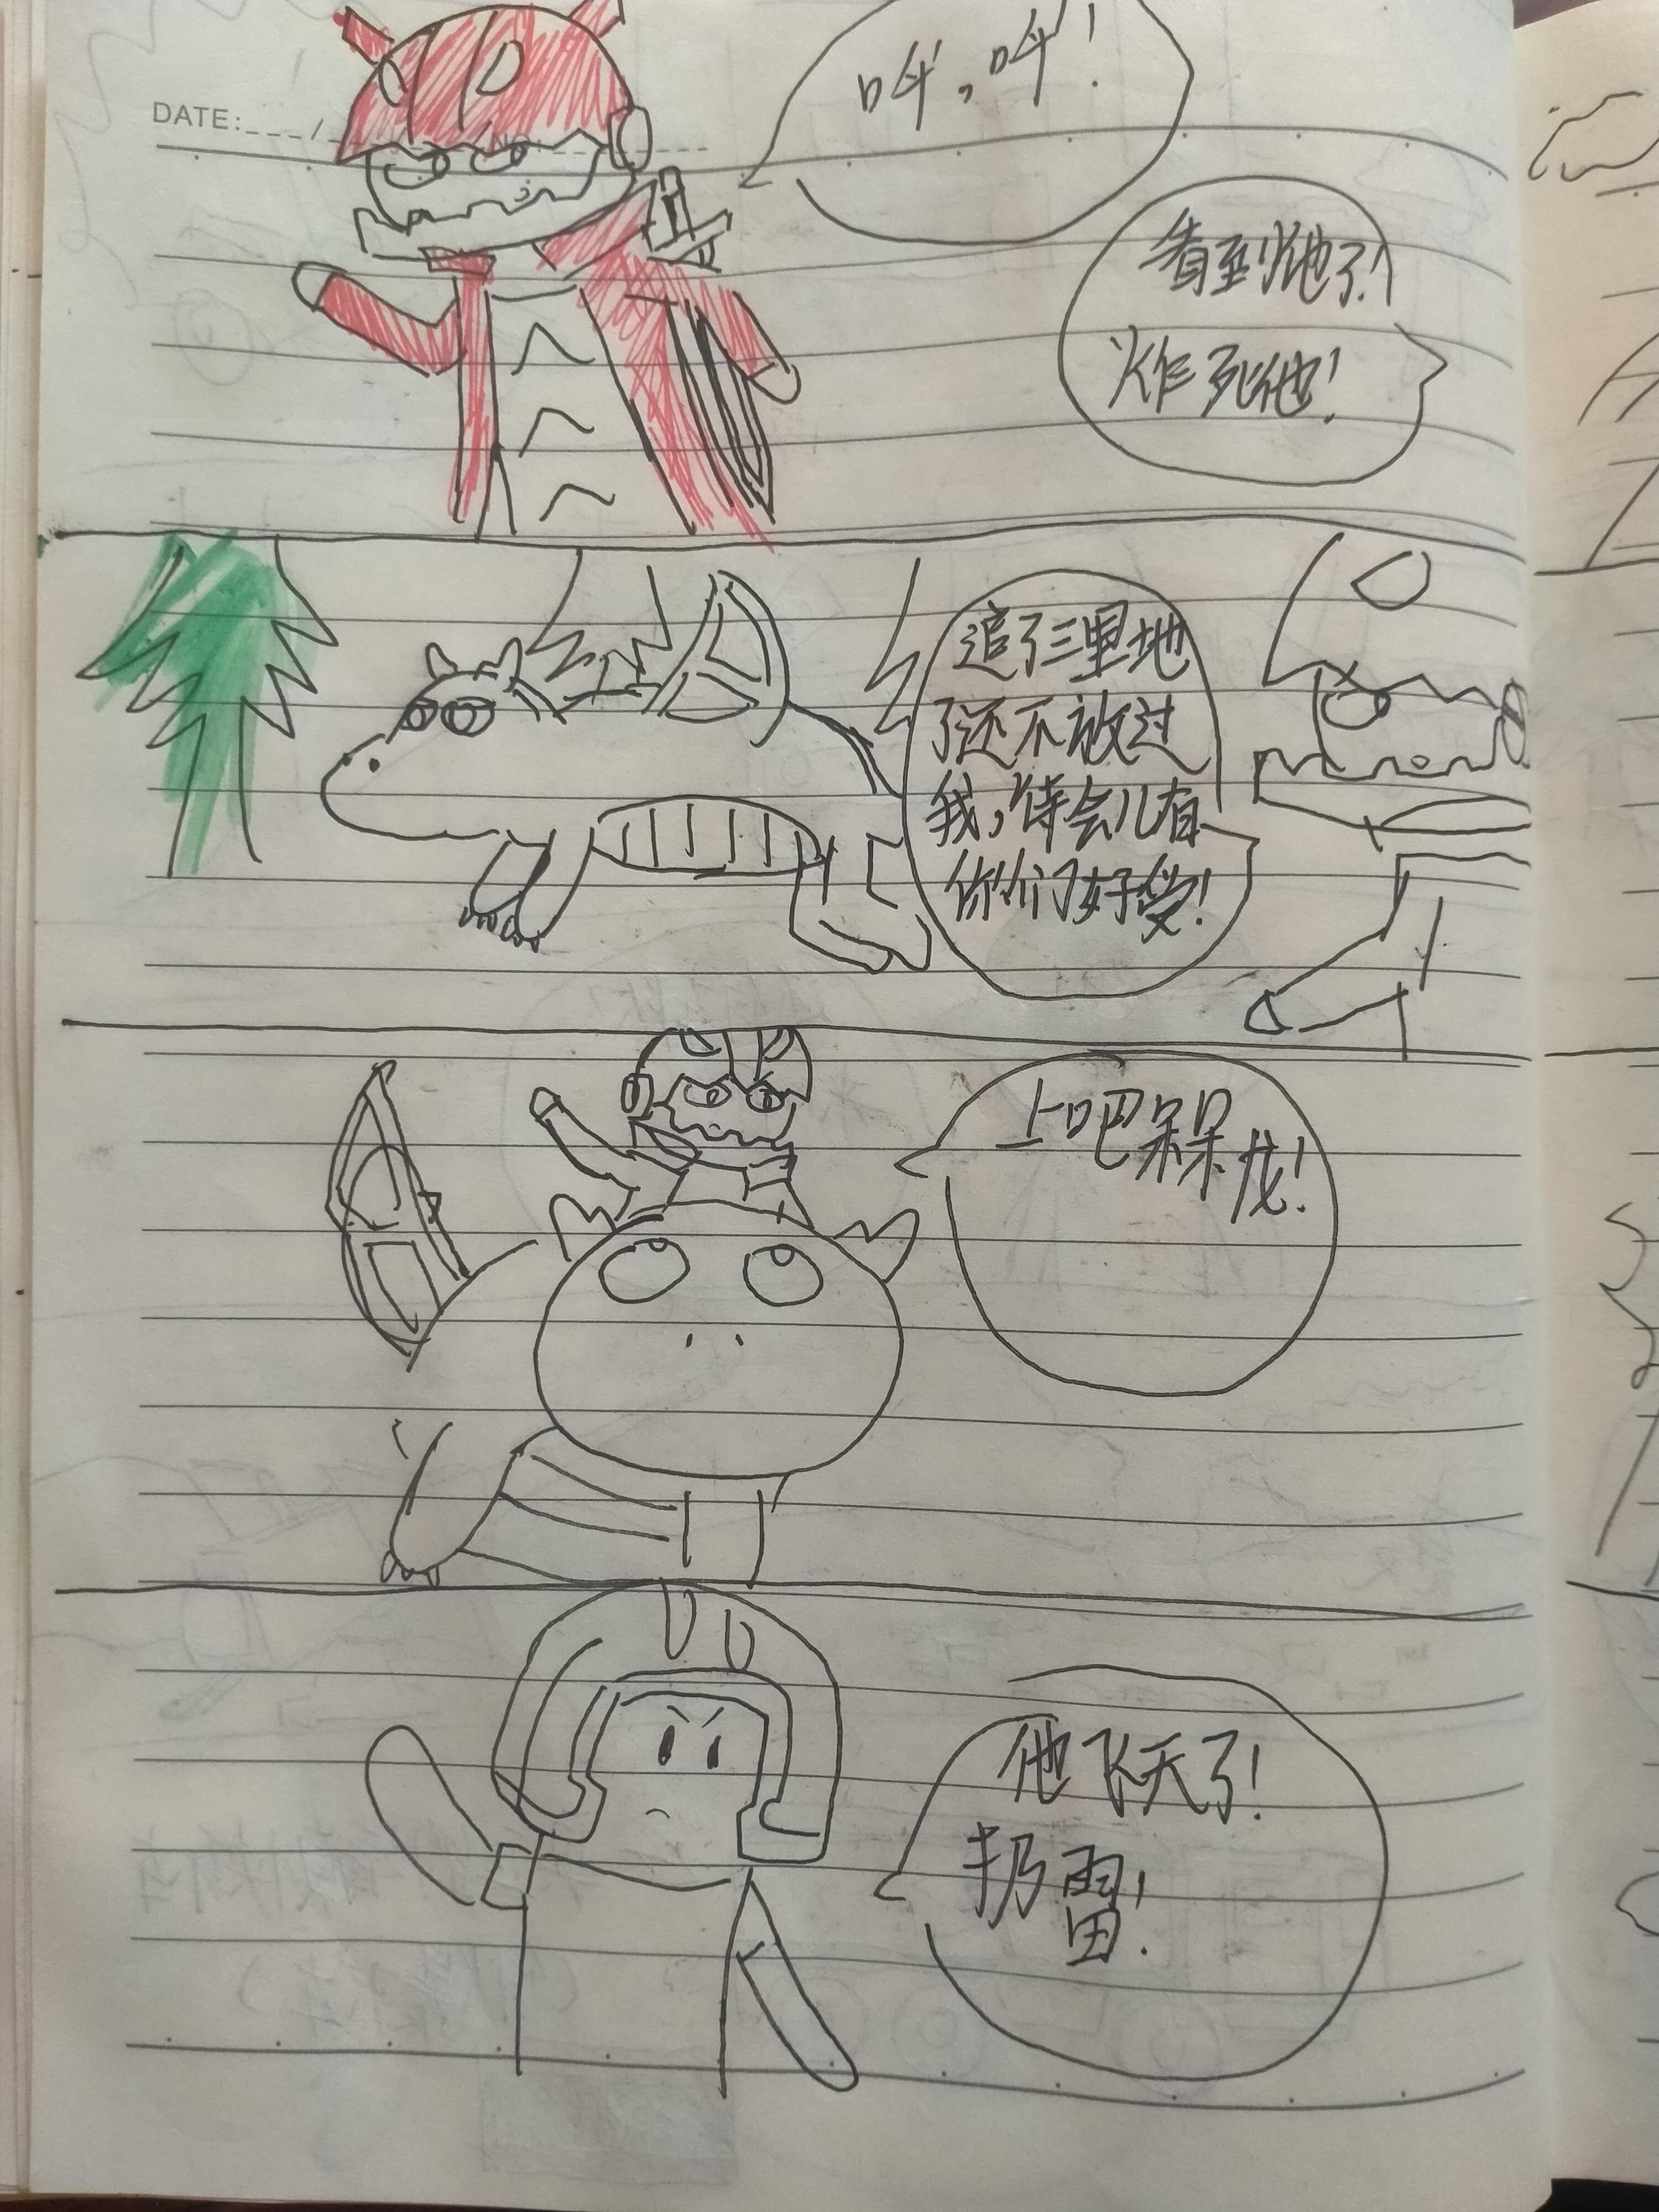 DATE:
呌,呌!
看到他了!
炸死他!
追了三里地
了还不放过
我,待会儿有
你们好受!
上吧呆呆龙!
他飞天了!
扔雷!